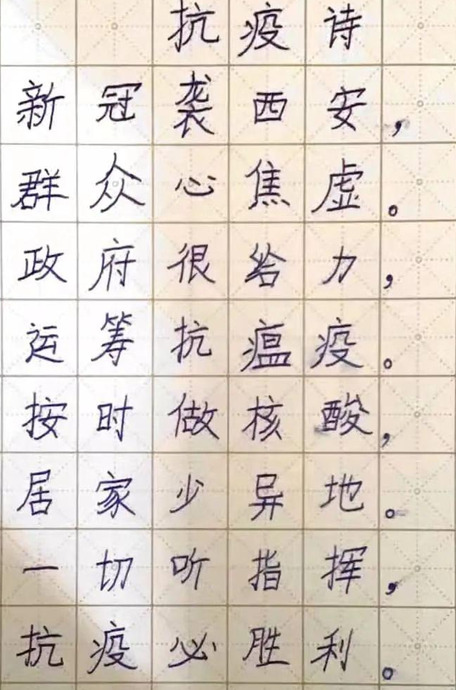 抗疫诗
新冠袭西安，
群众心焦虚。
政府很给力，
运筹抗瘟疫。
按时做核酸，
居家少异地。
一切听指挥，
抗疫必胜利。